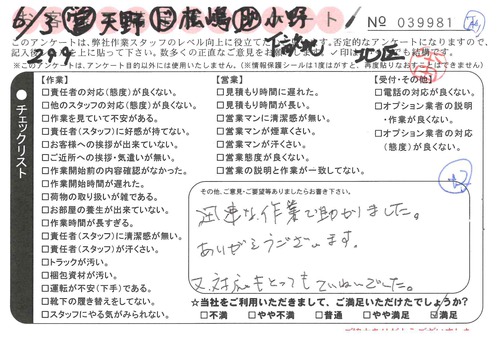 5/3 営 天野 鹿嶋 助 小野
299
北区
No 039981
このアンケートは、弊社作業スタッフのレベル向上に役立て
※このアンケートは、アンケート目的以外には使用いたしません。
チェックリスト
【作業】
□責任者の対応(態度)が良くない。
□他のスタッフの対応(態度)が良くない。
□作業を見ていて不安がある。
□責任者(スタッフ)に好感が持てない。
□お客様への挨拶が出来ていない。
□ご近所への挨拶・気遣いが無い。
□作業開始前の内容確認がなかった。
□作業開始時間が遅れた。
□荷物の取り扱いが雑である。
□お部屋の養生が出来ていない。
□作業時間が長すぎる。
□責任者(スタッフ)に清潔感が無い。
□責任者(スタッフ)が汗くさい。
□トラックが汚い。
□梱包資材が汚い。
□運転が不安(下手)である。
□靴下の履き替えをしてない。
□スタッフにやる気がみられない。
【営業】
□見積もり時間に遅れた。
□見積もり時間が長い。
□営業マンに清潔感が無い。
□営業マンが煙草くさい。
□営業マンが汗くさい。
□営業態度が良くない。
□営業の説明と作業が一致してない。
【受付・その他】
□電話の対応が良くない。
□オプション業者の説明
・作業が良くない。
□オプション業者の対応
(態度)が良くない。
その他、ご意見・ご要望等ありましたらお書き下さい。
迅速な作業で助かりました。
ありがとうございます。
又、対応もとってもていねいでした。
☆当社をご利用いただきまして、ご満足いただけたでしょうか?
□不満 □やや不満 □普通 □やや満足 ☑満足